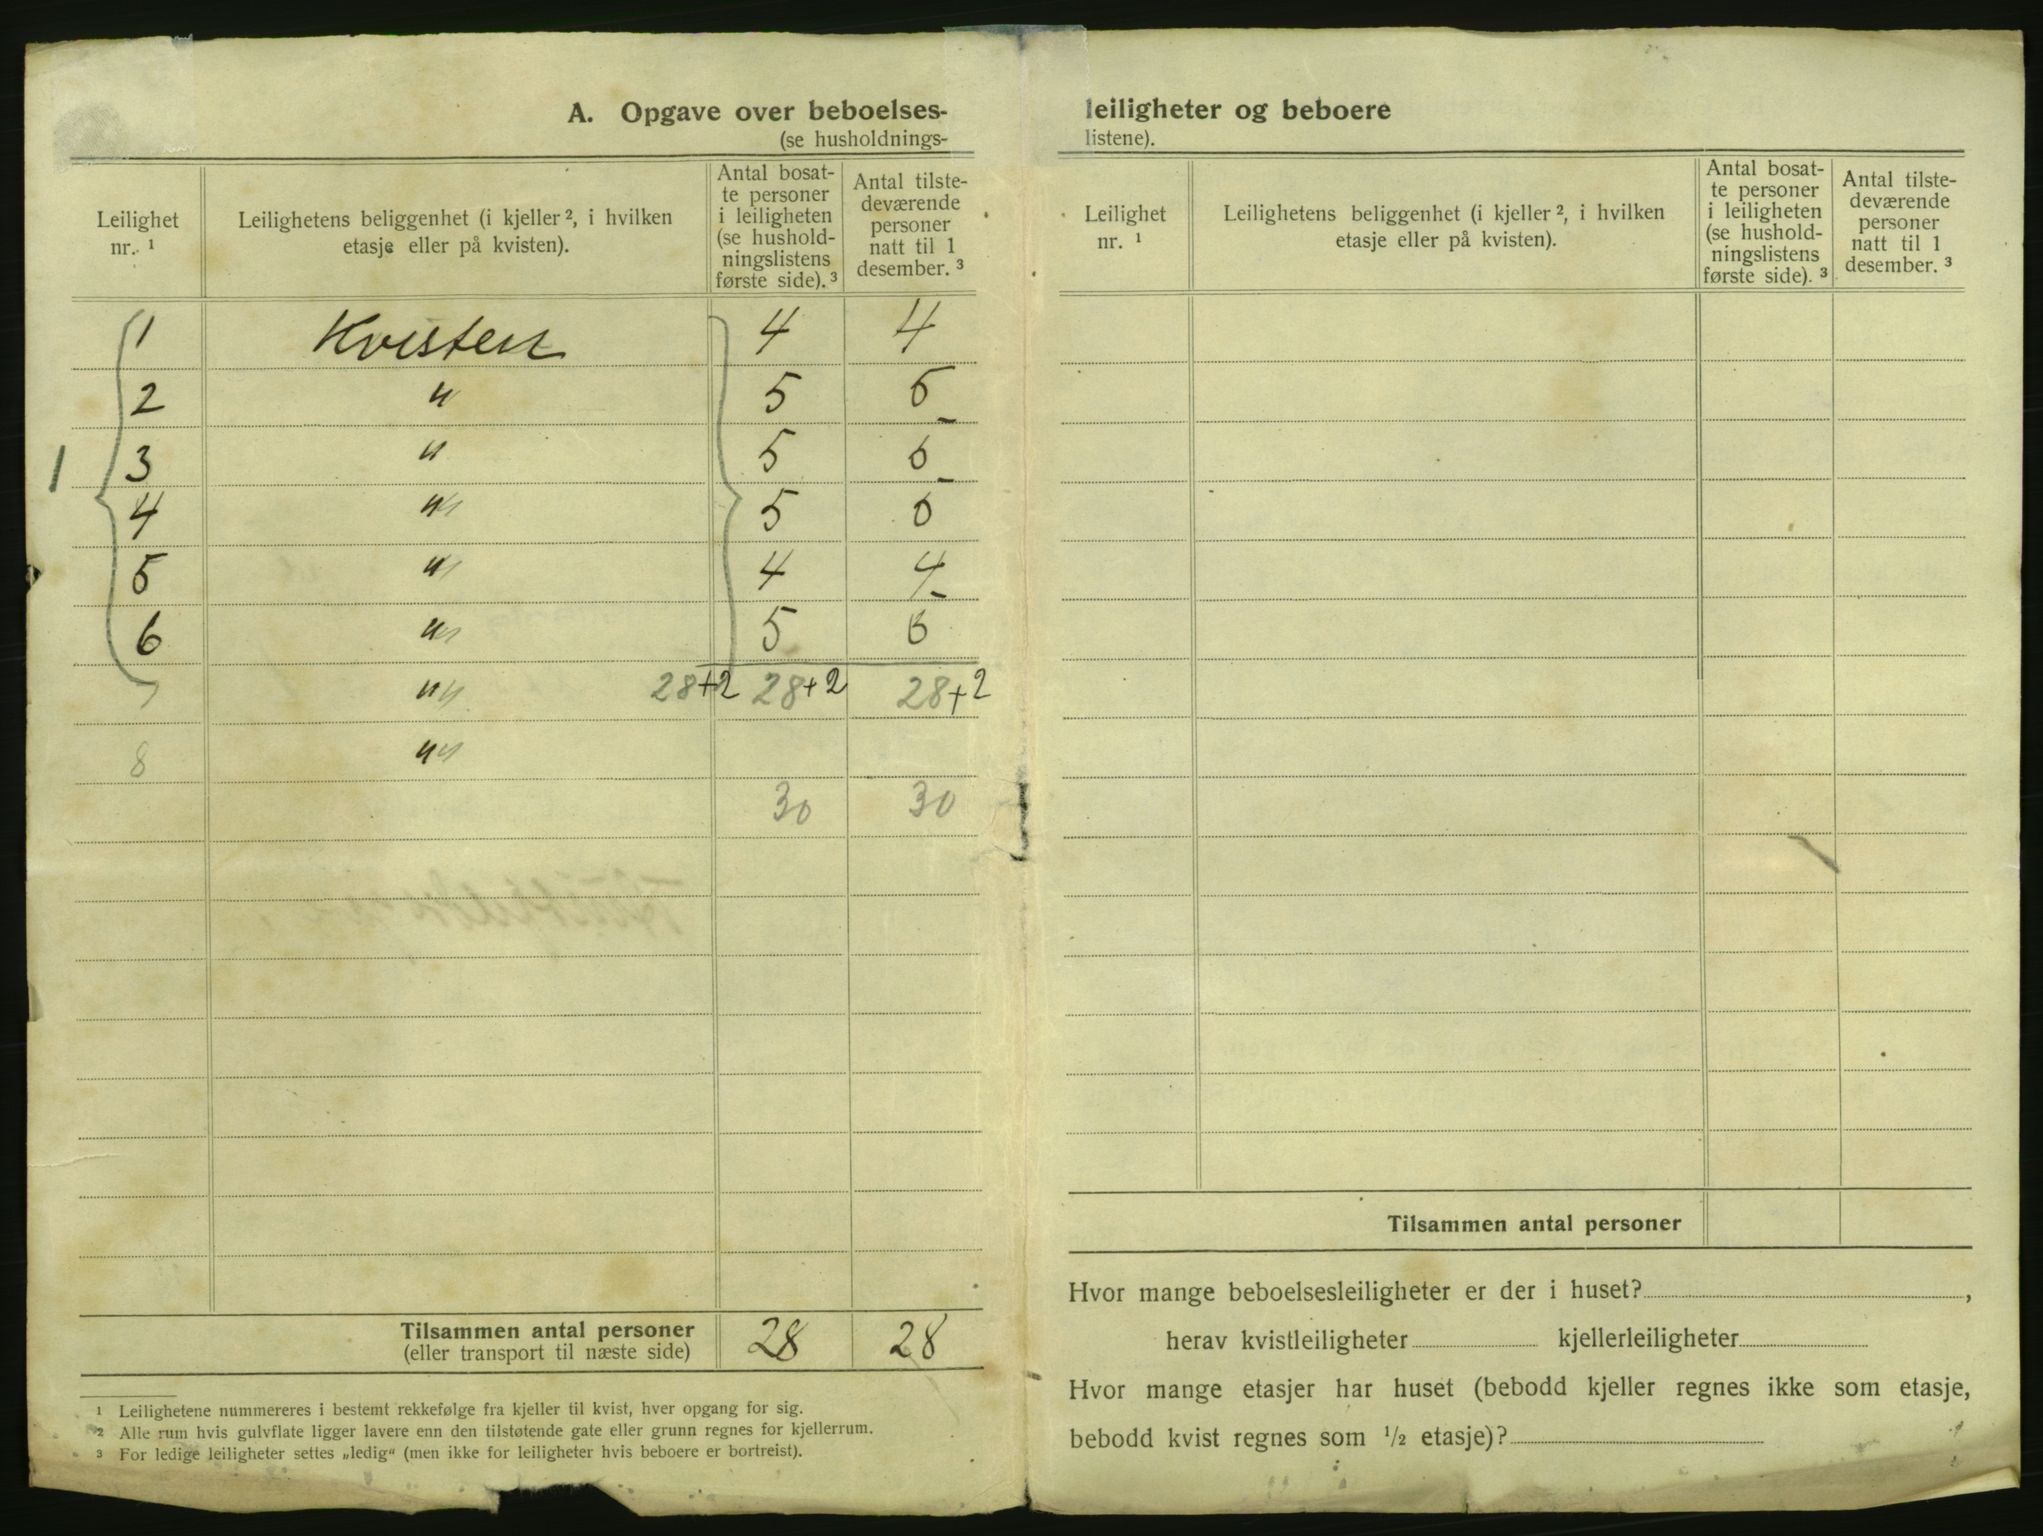 A. Opgave over beboelses-
(se husholdnings-
Leilighet nr. ¹ | Leilighetens beliggenhet (i kjeller ², i hvilken etasje eller på kvisten). | Antal bosatte personer i leiligheten (se husholdningslistens første side). ³ | Antal tilstedeværende personer natt til 1 desember. ³
1 Kvisten 4 4
2 " 5 5
1 3 " 5 5
4 " 5 5
5 " 4 4
6 " 5 5
7 " 28+2 28+2 28+2
8 "
30 30
Tilsammen antal personer 28 28
(eller transport til næste side)
¹ Leilighetene nummereres i bestemt rekkefølge fra kjeller til kvist, hver opgang for sig.
² Alle rum hvis gulvflate ligger lavere enn den tilstøtende gate eller grunn regnes for kjellerrum.
³ For ledige leiligheter settes „ledig“ (men ikke for leiligheter hvis beboere er bortreist).
leiligheter og beboere
listene).
Leilighet nr. ¹ | Leilighetens beliggenhet (i kjeller ², i hvilken etasje eller på kvisten). | Antal bosatte personer i leiligheten (se husholdningslistens første side). ³ | Antal tilstedeværende personer natt til 1 desember. ³
Tilsammen antal personer
Hvor mange beboelsesleiligheter er der i huset? ,
herav kvistleiligheter kjellerleiligheter
Hvor mange etasjer har huset (bebodd kjeller regnes ikke som etasje,
bebodd kvist regnes som ½ etasje)?